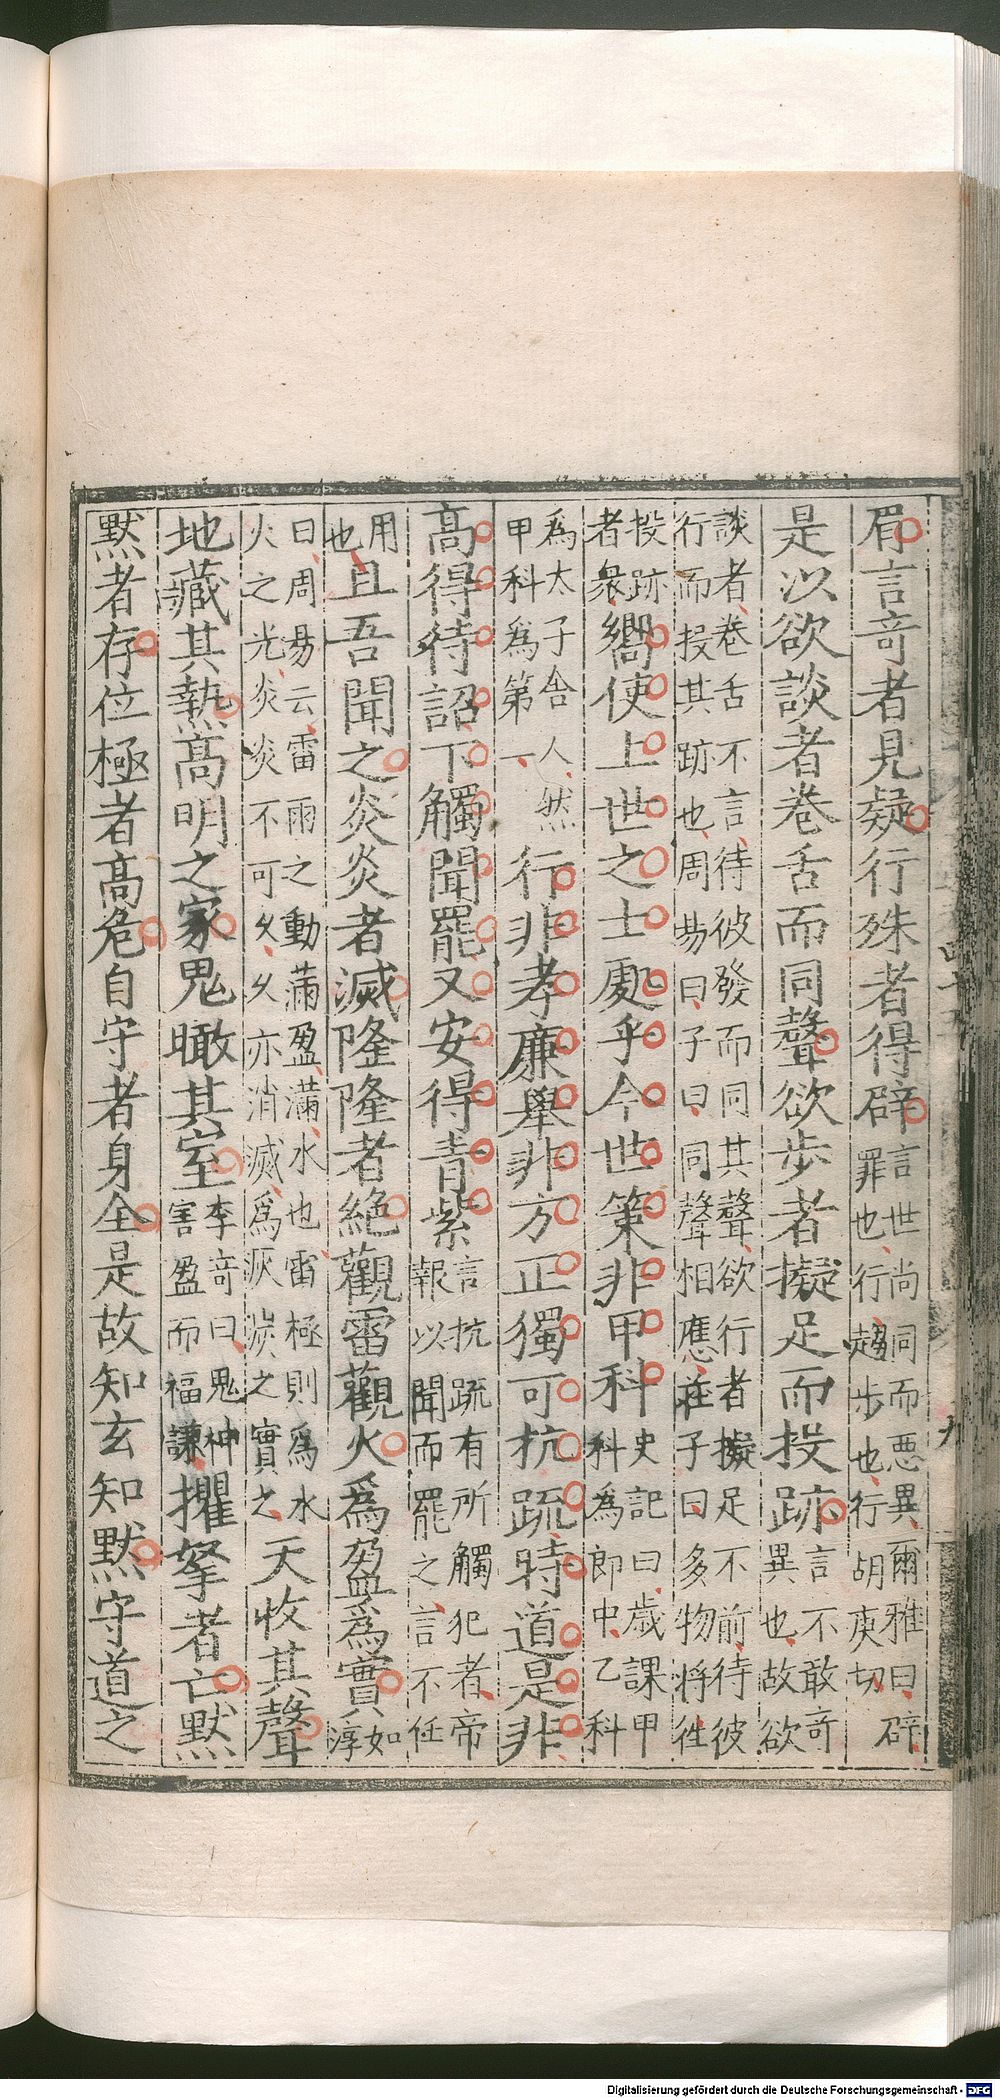 眉言奇者見疑行殊者得辟言世尚同而惡異爾雅曰辟
罪也行趨步也行胡庚切
是以欲談者卷舌而同聲欲步者擬足而投跡言不敢奇
異也故欲
談者卷舌不言待彼發而同其聲欲行者擬足不前待彼
行而投其跡也周易曰子曰同聲相應莊子曰多物将往
投跡
者衆嚮使上世之士處乎今世策非甲科史記曰歳課甲
科為郎中乙科
為太子舍人然
甲科為第一行非孝廉舉非方正獨可抗疏時道是非
高得待詔下觸聞罷又安得青紫言抗疏有所觸犯者帝
報以聞而罷之言不任
用
也且吾聞之炎炎者滅隆隆者絶觀雷觀火為盈為實如
淳
曰周易云雷雨之動滿盈滿水也雷極則為水
火之光炎炎不可久久亦消滅為灰炭之實之天收其聲
地藏其熱高明之家鬼瞰其室李奇曰鬼神
害盈而福謙攫拏者亡黙
黙者存位極者高危自守者身全是故知玄知黙守道之
九
Digitalisierung gefördert durch die Deutsche Forschungsgemeinschaft - DFG